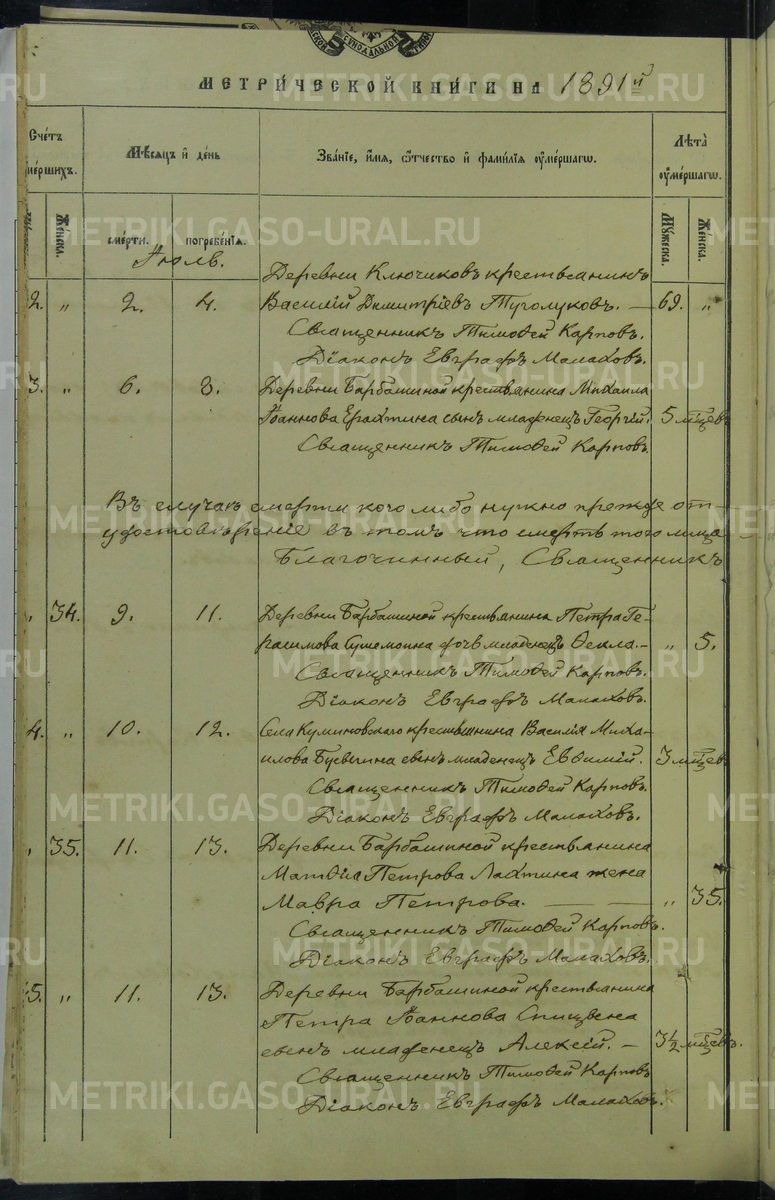 МЕТРИ́ЧЕСКОЙ КНИ́ГИ НА 1891й
Счéтъ
Мѣ́сяцъ и дéнь
Звáнїе, и́мя, ѻ҆́тчество и фамѝлїя ᲂу҆мéршагѡ.
Лѣ́та
ᲂу҆мéршагѡ.
Жéнска.
смéрти.
погребéнїя.
Мꙋ́жеска.
Жéнска.
Іюль.
Деревни Ключиковъ крестьянинъ
2. „ 2. 4. Василій Димитріевъ Туголуковъ. — 69. „
Священникъ Тимоѳей Карповъ.
Діаконъ Евграфъ Малаховъ.
3. „ 6. 8. Деревни Барбашиной крестьянина Михаила
Іоаннова сынъ младенецъ Георгій. 5 мцевъ
Священникъ Тимоѳей Карповъ
Въ случаѣ смерти кого либо нужно прежде от-
удостовѣреніе въ томъ что смерть того лица
Благочинный, Священникъ
„ 34. 9. 11. Деревни Барбашиной крестьянина Петра Ге-
расимова дочь младенецъ Ѳекла. — „ 5.
Священникъ Тимоѳей Карповъ.
Діаконъ Евграфъ Малаховъ.
4. „ 10. 12. Села крестьянина Василія Миха-
илова сынъ младенецъ Евѳимій. 3 мцев
Священникъ Тимоѳей Карповъ.
Діаконъ Евграфъ Малаховъ.
„ 35. 11. 13. Деревни Барбашиной крестьянина
Матѳія Петрова Лахтина жена
Мавра Петрова. — — „ 35.
Священникъ Тимоѳей Карповъ.
Діаконъ Евграфъ Малаховъ.
5. „ 11. 13. Деревни Барбашиной крестьянина
Петра Іоаннова
сынъ младенецъ Алексій. — 3½ мцевъ.
Священникъ Тимоѳей Карповъ
Діаконъ Евграфъ Малаховъ.
METRIKI.GASO-URAL.RU